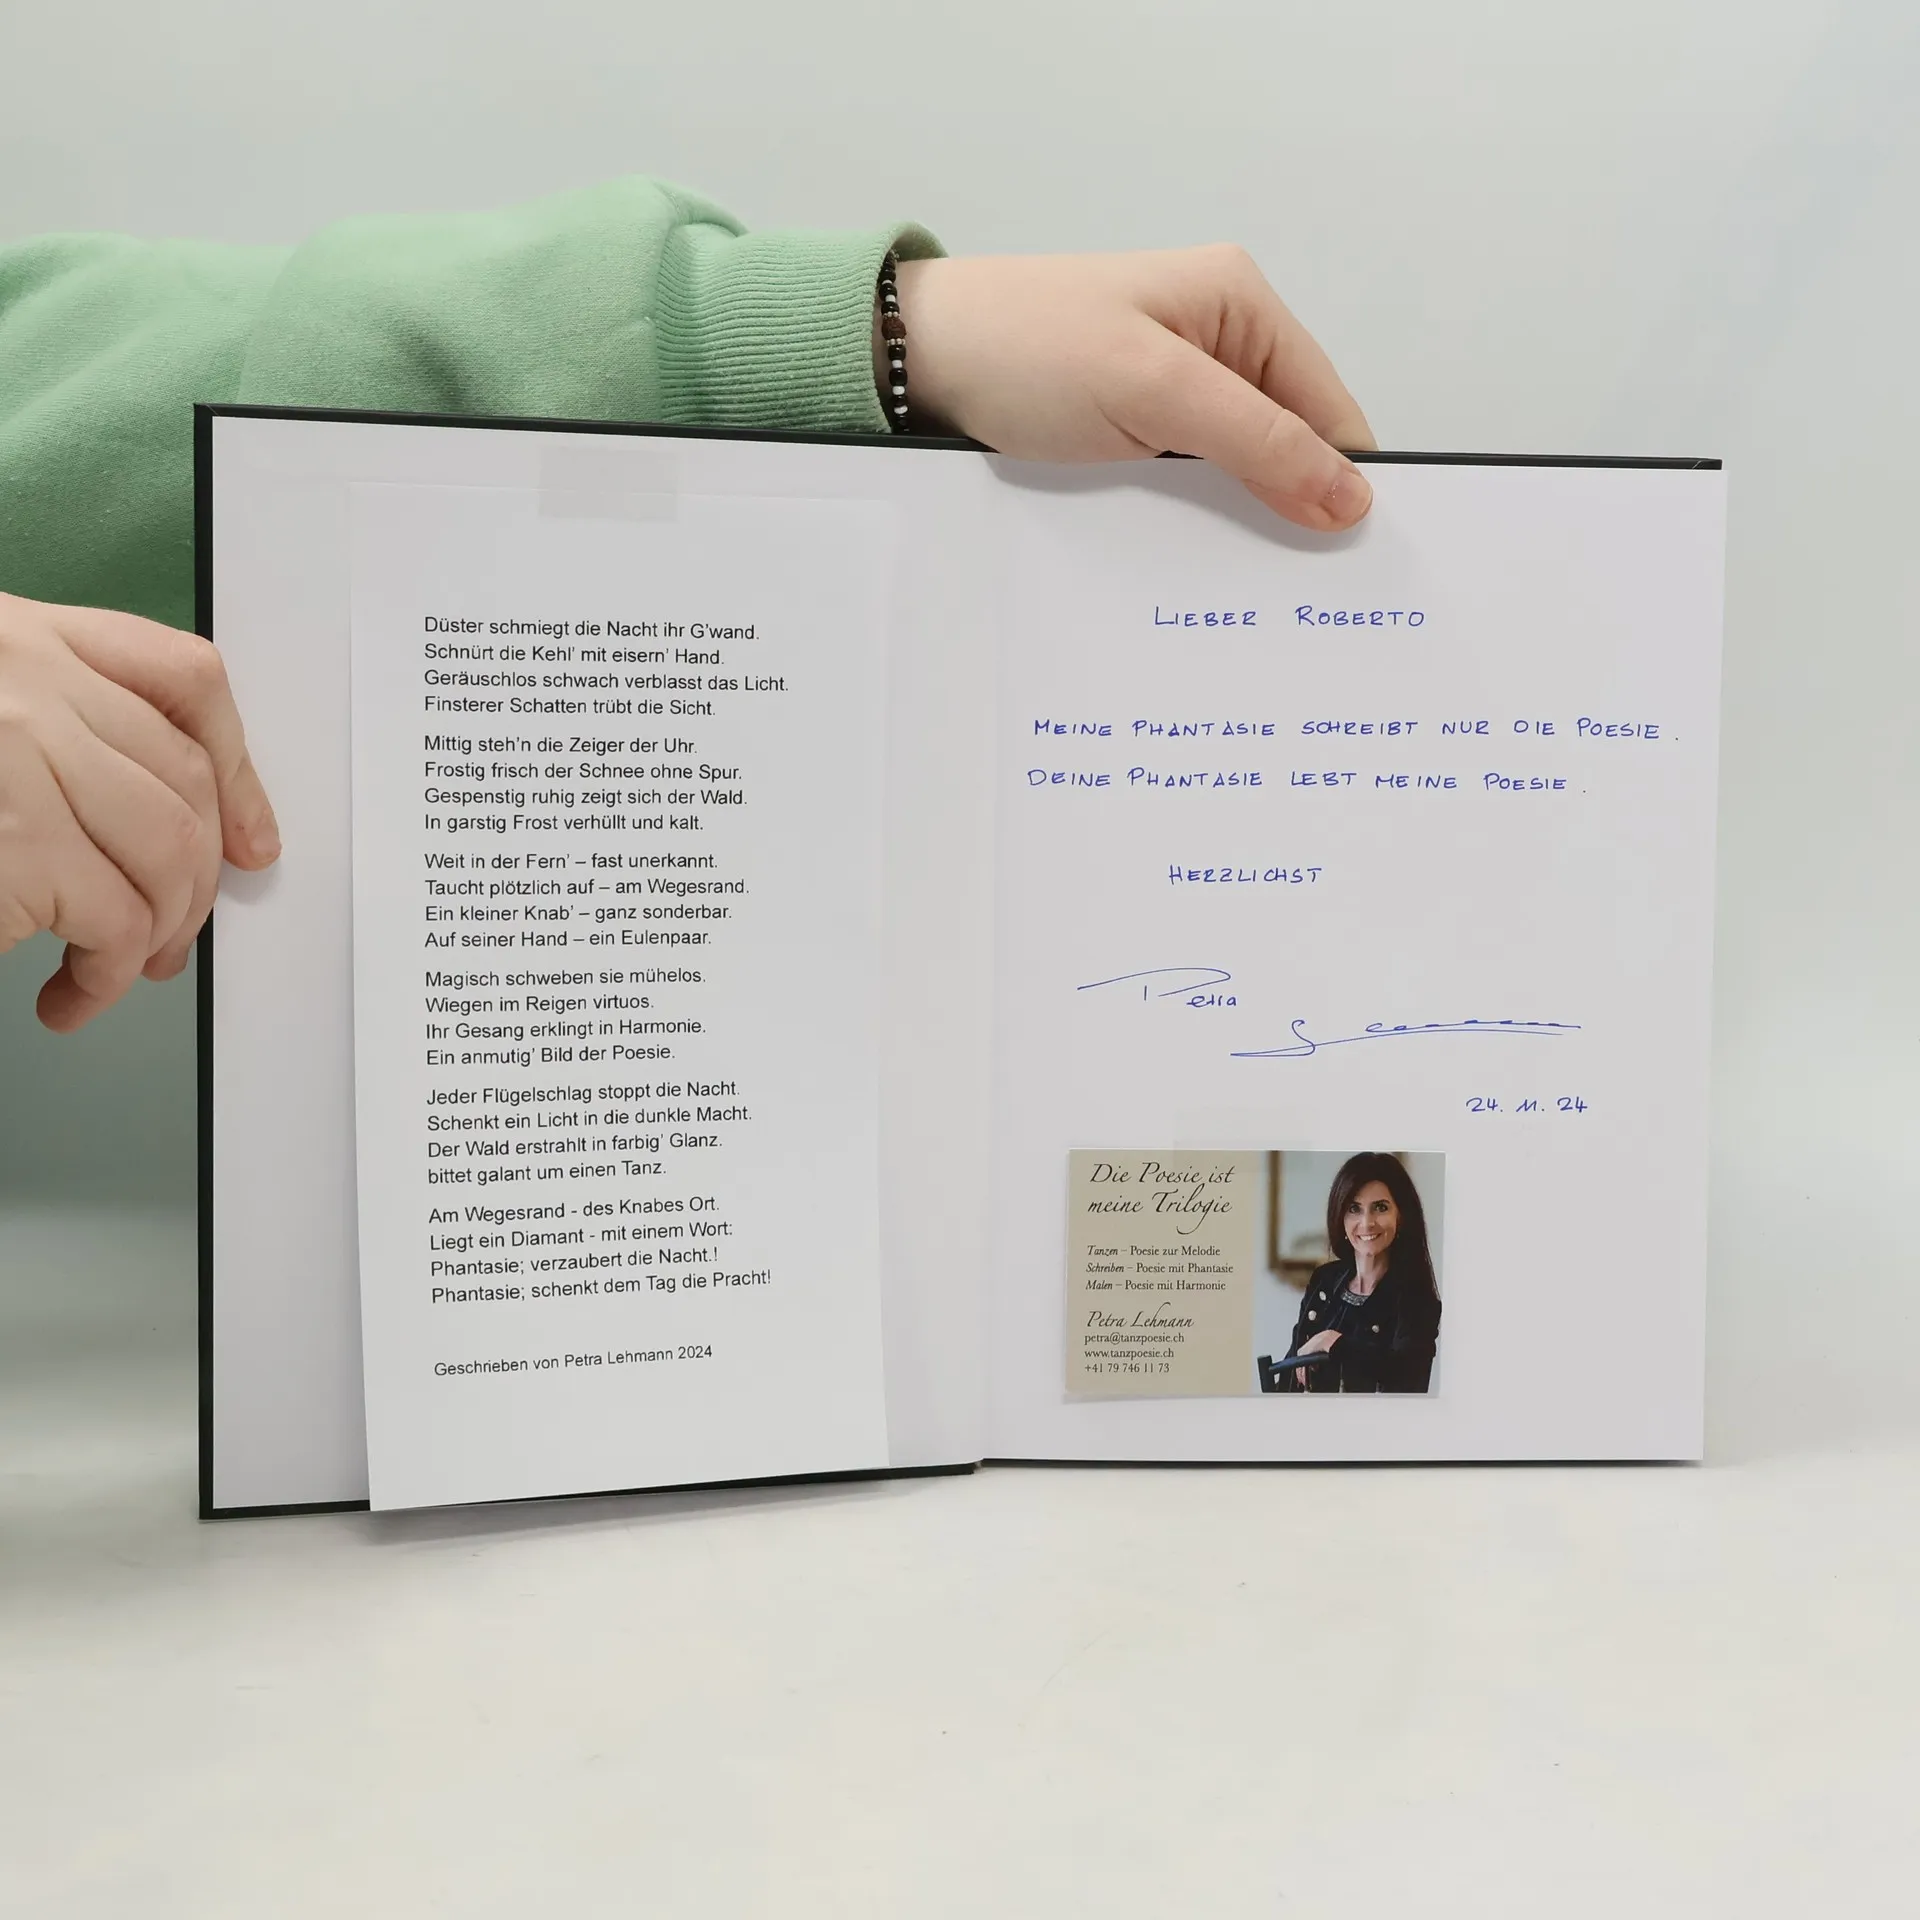 Düster schmiegt die Nacht ihr G'wand.
Schnürt die Kehl' mit eisern' Hand.
Geräuschlos schwach verblasst das Licht.
Finsterer Schatten trübt die Sicht.
Mittig steh'n die Zeiger der Uhr.
Frostig frisch der Schnee ohne Spur.
Gespenstig ruhig zeigt sich der Wald.
In garstig Frost verhüllt und kalt.
Weit in der Fern' – fast unerkannt.
Taucht plötzlich auf – am Wegesrand.
Ein kleiner Knab' – ganz sonderbar.
Auf seiner Hand – ein Eulenpaar.
Magisch schweben sie mühelos.
Wiegen im Reigen virtuos.
Ihr Gesang erklingt in Harmonie.
Ein anmutig' Bild der Poesie.
Jeder Flügelschlag stoppt die Nacht.
Schenkt ein Licht in die dunkle Macht.
Der Wald erstrahlt in farbig' Glanz.
bittet galant um einen Tanz.
Am Wegesrand - des Knabes Ort.
Liegt ein Diamant - mit einem Wort:
Phantasie; verzaubert die Nacht.!
Phantasie; schenkt dem Tag die Pracht!
Geschrieben von Petra Lehmann 2024
LIEBER ROBERTO
MEINE PHANTASIE SCHREIBT NUR DIE POESIE.
DEINE PHANTASIE LEBT MEINE POESIE.
HERZLICHST
Petra
24. 11. 24
Die Poesie ist
meine Trilogie
Tanzen – Poesie zur Melodie
Schreiben – Poesie mit Phantasie
Malen – Poesie mit Harmonie
Petra Lehmann
petra@tanzpoesie.ch
www.tanzpoesie.ch
+41 79 746 11 73